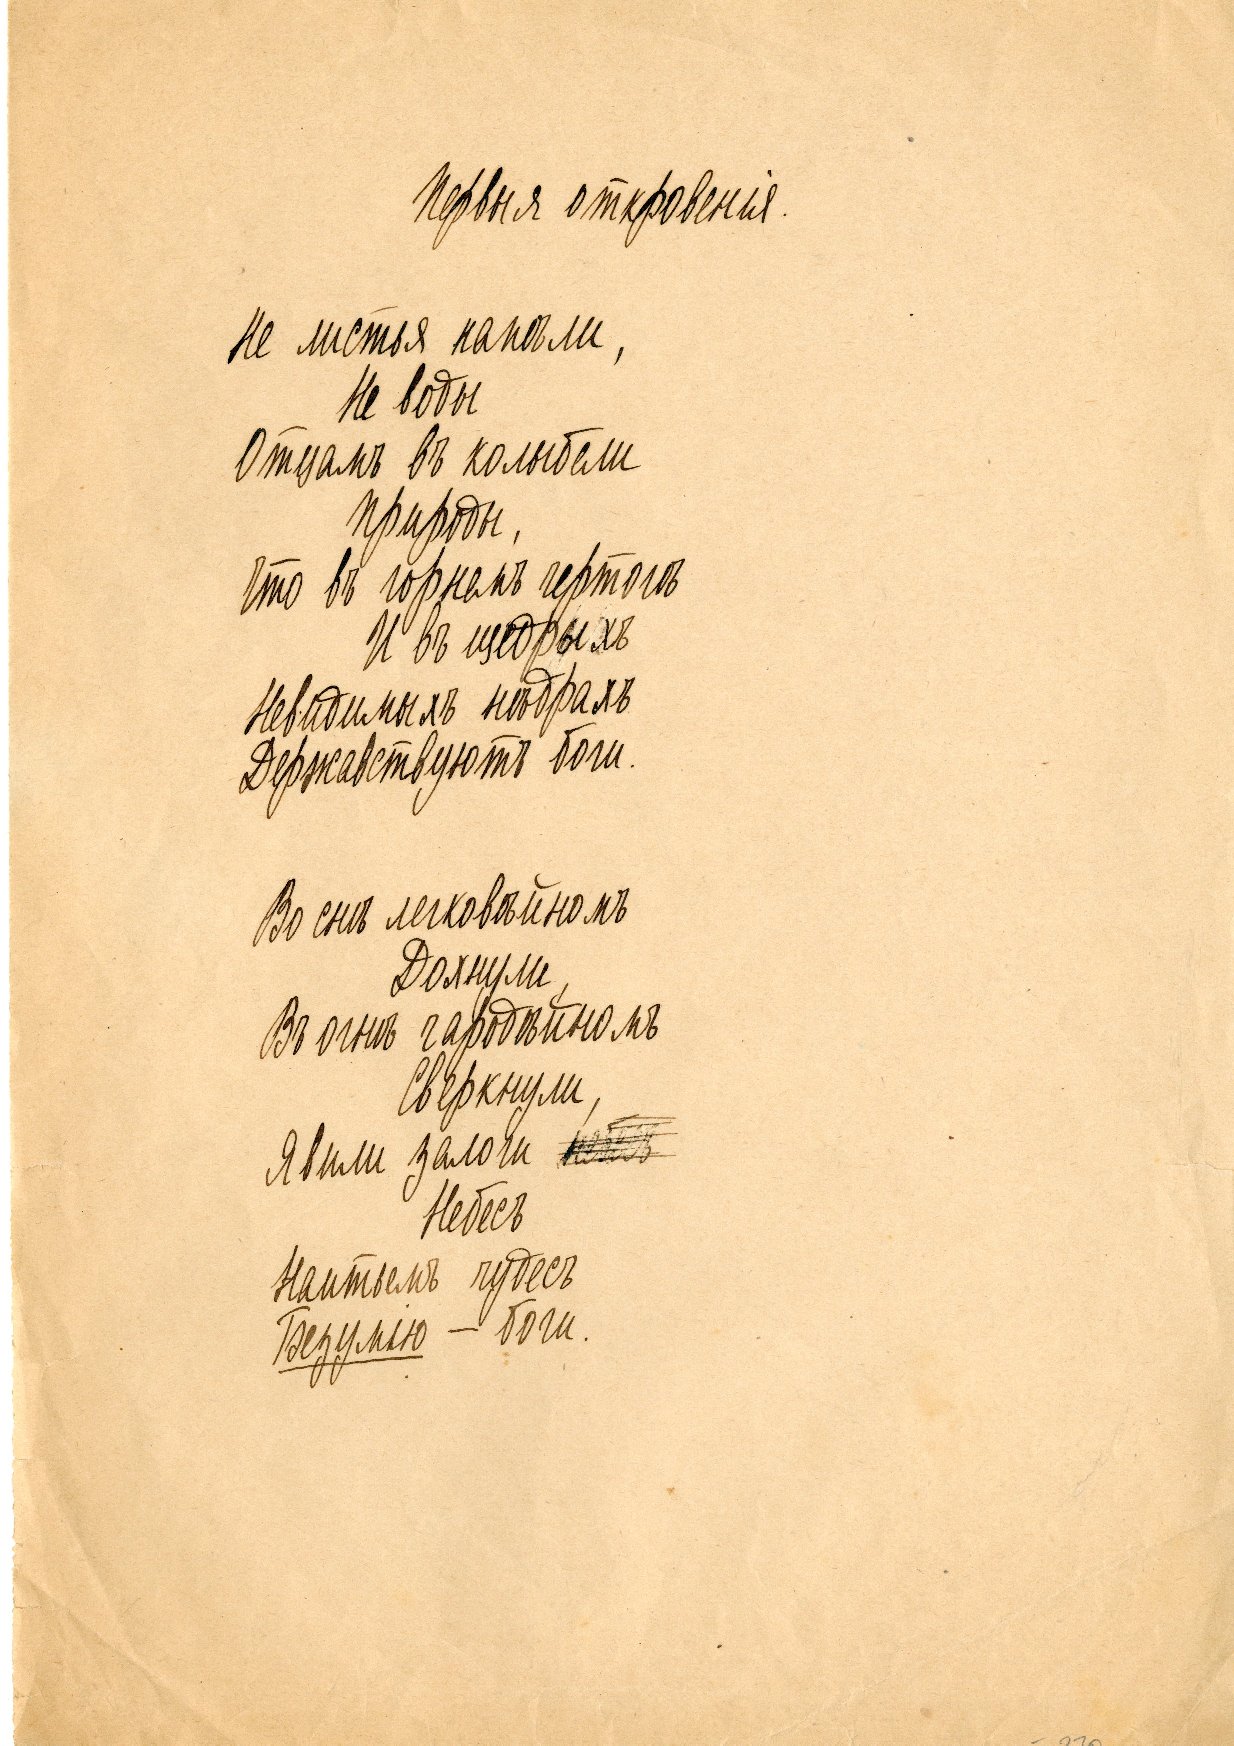 Первыя откровенія.
Не листья напѣли,
Не воды
Отцамъ въ колыбели
Природы,
Что въ горнемъ чертогѣ
И въ щедрыхъ
Невидимыхъ нѣдрахъ
Державствуютъ боги.
Во снѣ легковѣйномъ
Дохнули,
Въ огнѣ чародѣйномъ
Сверкнули,
Явили залоги небесъ
Небесъ
Наитьемъ чудесъ
Безумію — боги.